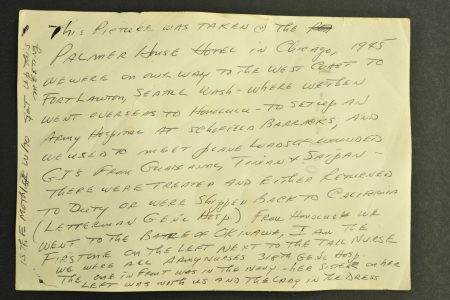 This PICTURE WAS TAKEN @ THE
PALMER HOUSE HOTEL IN Chicago, 1945
WE WERE ON OUR WAY TO THE WEST COAST TO
FORT LAWTON, SEATTLE WASH - WHERE WE THEN
WENT OVERSEAS TO HONOLULU - TO SET UP AN
ARMY HOSPITAL AT SCHOFIELD BARRACKS, AND
WE USED TO MEET PLANE LOADS OF WOUNDED
G.I'S FROM TINIAN & SAIPAN -
THERE WERE TREATED AND EITHER RETURNED
TO DUTY OR WERE SHIPPED BACK TO CALIFORNIA
(LETTERMAN GEN'L HOSP.) FROM HONOLULU WE
WENT TO THE BATTLE OF OKINAWA, I AM THE
FIRST ONE ON THE LEFT NEXT TO THE TALL NURSE
WE WERE ALL ARMY NURSES 318TH GEN'L HOSP.
THE ONE IN FRONT WAS IN THE NAVY - HER SISTER ON HER
LEFT WAS WITH US AND THE LADY IN THE DRESS
IS THE MOTHER WHO SET UP THIS